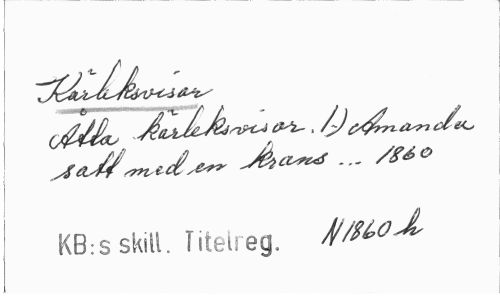 Kärleksvisor
Åtta kärleksvisor. 1.) Amanda
satt med en krans ... 1860
KB:s skill. Titelreg. N1860h